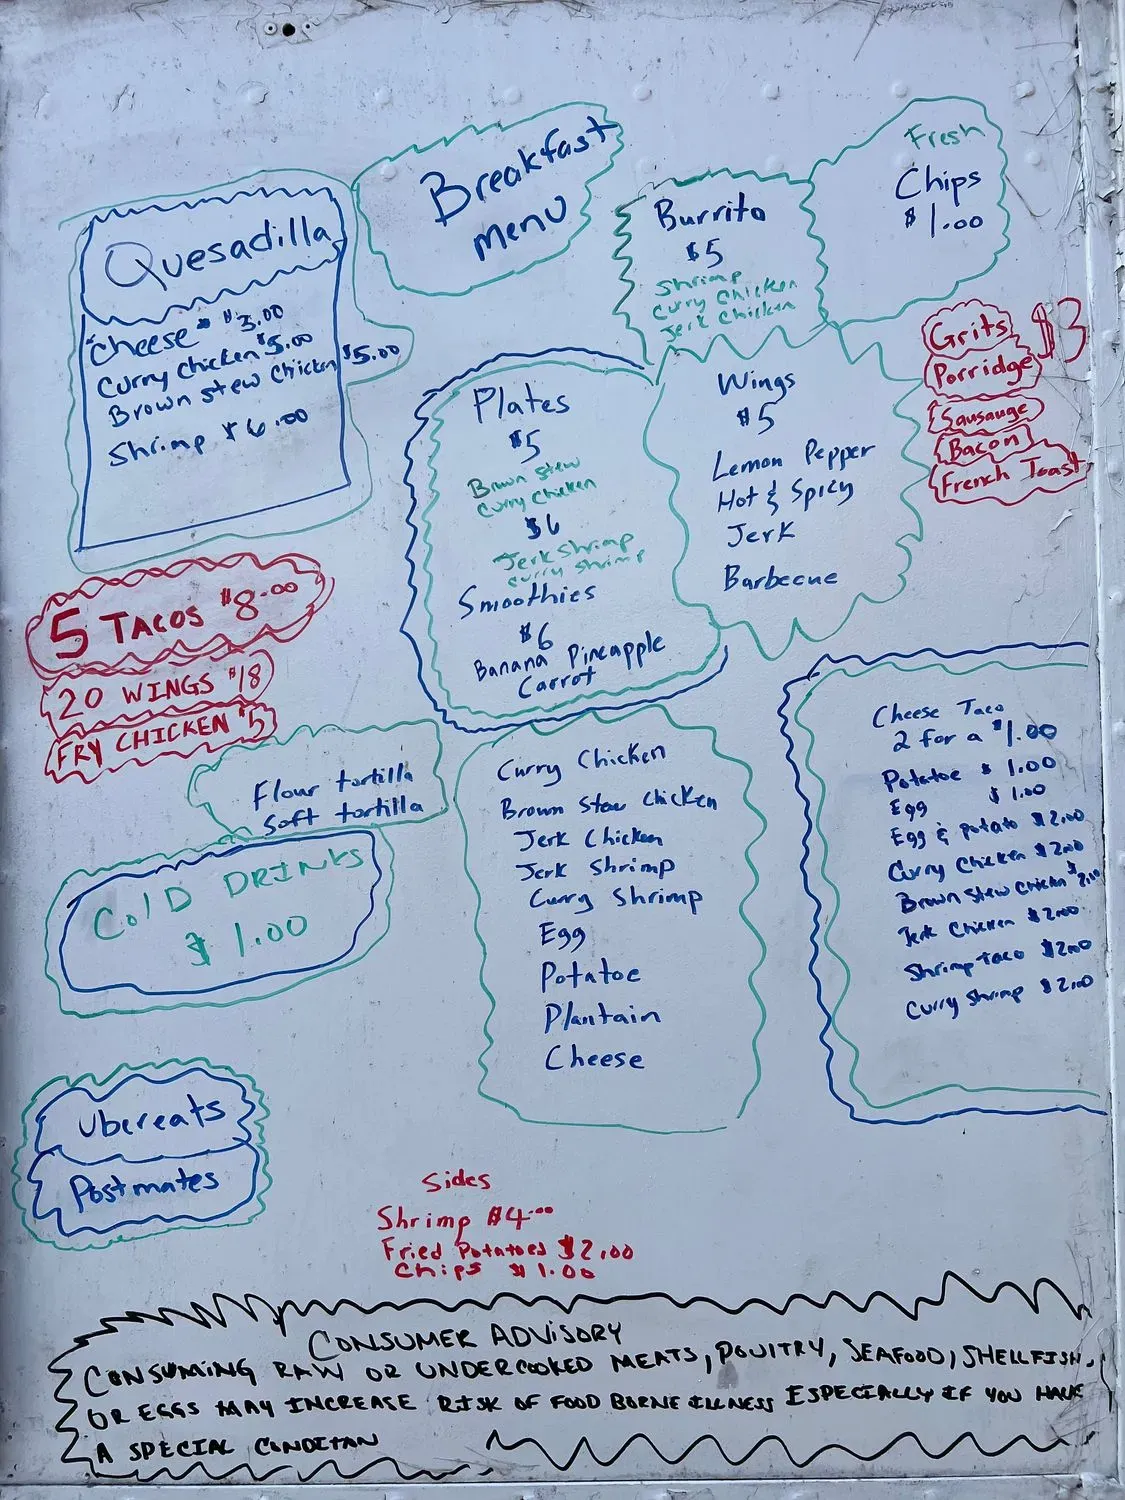 Breakfast
menu
Quesadilla
Cheese $3.00
Curry Chicken $5.00
Brown stew Chicken $5.00
Shrimp $6.00
Burrito
$5
Shrimp
Curry Chicken
Jerk Chicken
Fresh
Chips
$1.00
Grits $3
Porridge
Sausauge
Bacon
French Toast
Plates
$5
Brown stew
Curry Chicken
$6
Jerk Shrimp
Curry Shrimp
Smoothies
$6
Banana Pineapple
Carrot
Wings
$5
Lemon Pepper
Hot & Spicy
Jerk
Barbecue
5 TACOS $8.00
20 WINGS $18
FRY CHICKEN $5
Flour tortilla
Soft tortilla
COlD DRINKS
$1.00
Curry Chicken
Brown Stew Chicken
Jerk Chicken
Jerk Shrimp
Curry Shrimp
Egg
Potatoe
Plantain
Cheese
Cheese Taco
2 for a $1.00
Potatoe $1.00
Egg $1.00
Egg & potato $2.00
Curry Chicken $2.00
Brown Stew Chicken $2.00
Jerk Chicken $2.00
Shrimp taco $2.00
Curry Shrimp $2.00
Ubereats
Postmates
Sides
Shrimp $4.00
Fried Potatoes $2.00
Chips $1.00
CONSUMER ADVISORY
CONSUMING RAW OR UNDERCOOKED MEATS, POULTRY, SEAFOOD, SHELLFISH,
OR EGGS MAY INCREASE RISK OF FOOD BORNE ILLNESS ESPECIALLY IF YOU HAVE
A SPECIAL CONDITAN